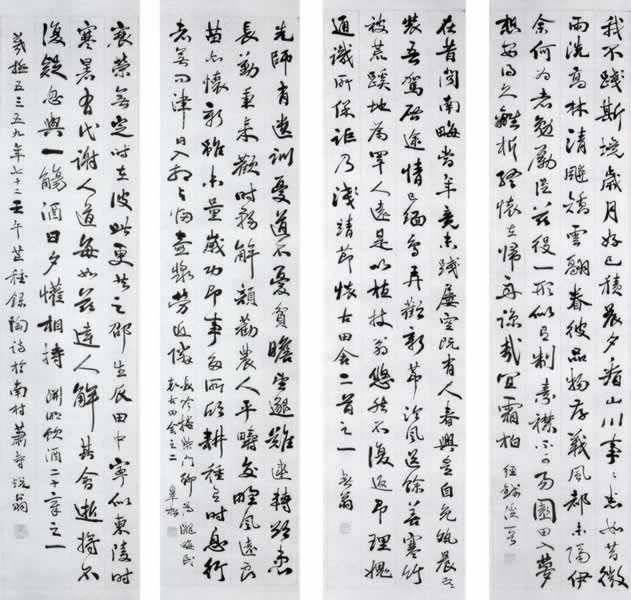 我不踐斯境歲月好已積晨夕看山川事々悉如昔微
雨洗高林清飇矯雲翮眷彼品物存義風都未隔伊
余何為者勉勵從茲役一形似有制素襟不可易園田日夢
想安得久離析終懷在歸舟諒哉宜霜柏 經錢溪一首
在昔聞南畝當年竟未踐屢空既有人春興豈自免夙晨
裝吾駕啓途情已緬鳥弄歡新節泠風送餘善寒竹
被荒蹊地為罕人遠是以植杖翁悠然不復返即理愧
通識所保詎乃淺 靖節懷古田舍二首之一 蛻翁
先師有遺訓憂道不憂貧瞻望邈難逮轉欲患
長勤秉耒歡時務解顏勸農人平疇交遠風良
苗亦懷新雖未量歲功即事多所欣耕種有時息行
者無問津日入相與歸壺漿勞近隣 長吟掩柴門聊為隴畝民
懷古田舍之二
衰榮無定在彼此更共之邵生瓜田中寧似東陵時
寒暑有代謝人道每如茲達人解其會逝將不
復疑忽與一觴酒日夕懽相持 淵明飲酒二十章之一
羲極五三五九年七十三壬午芒種錄陶詩於南村蕭齋 蛻翁